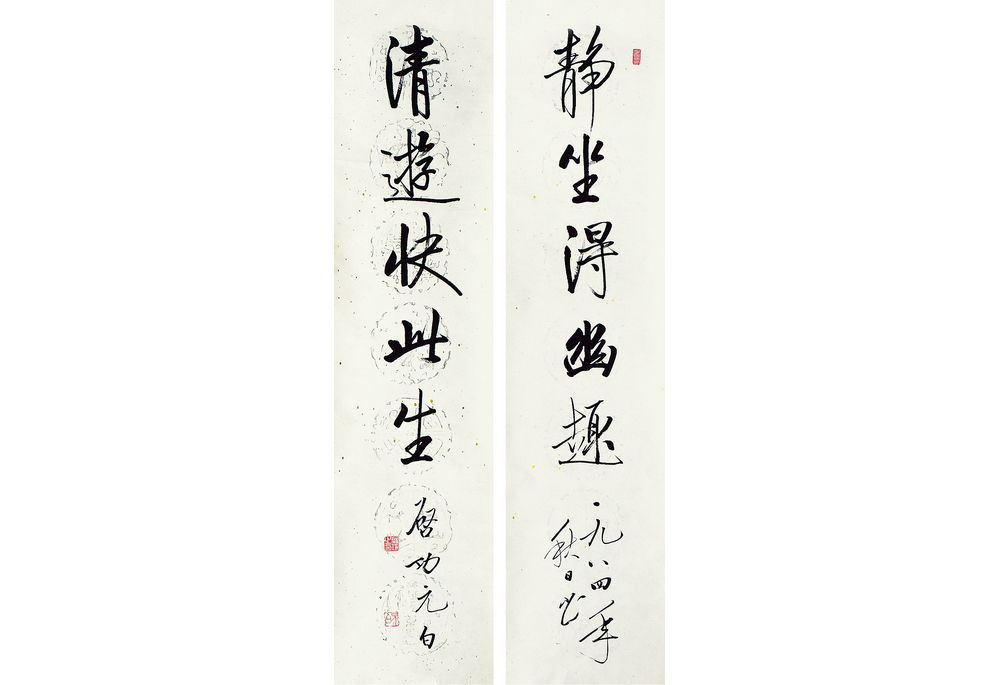 静坐得幽趣
一九八四年
秋日书
清遊快此生
启功元白